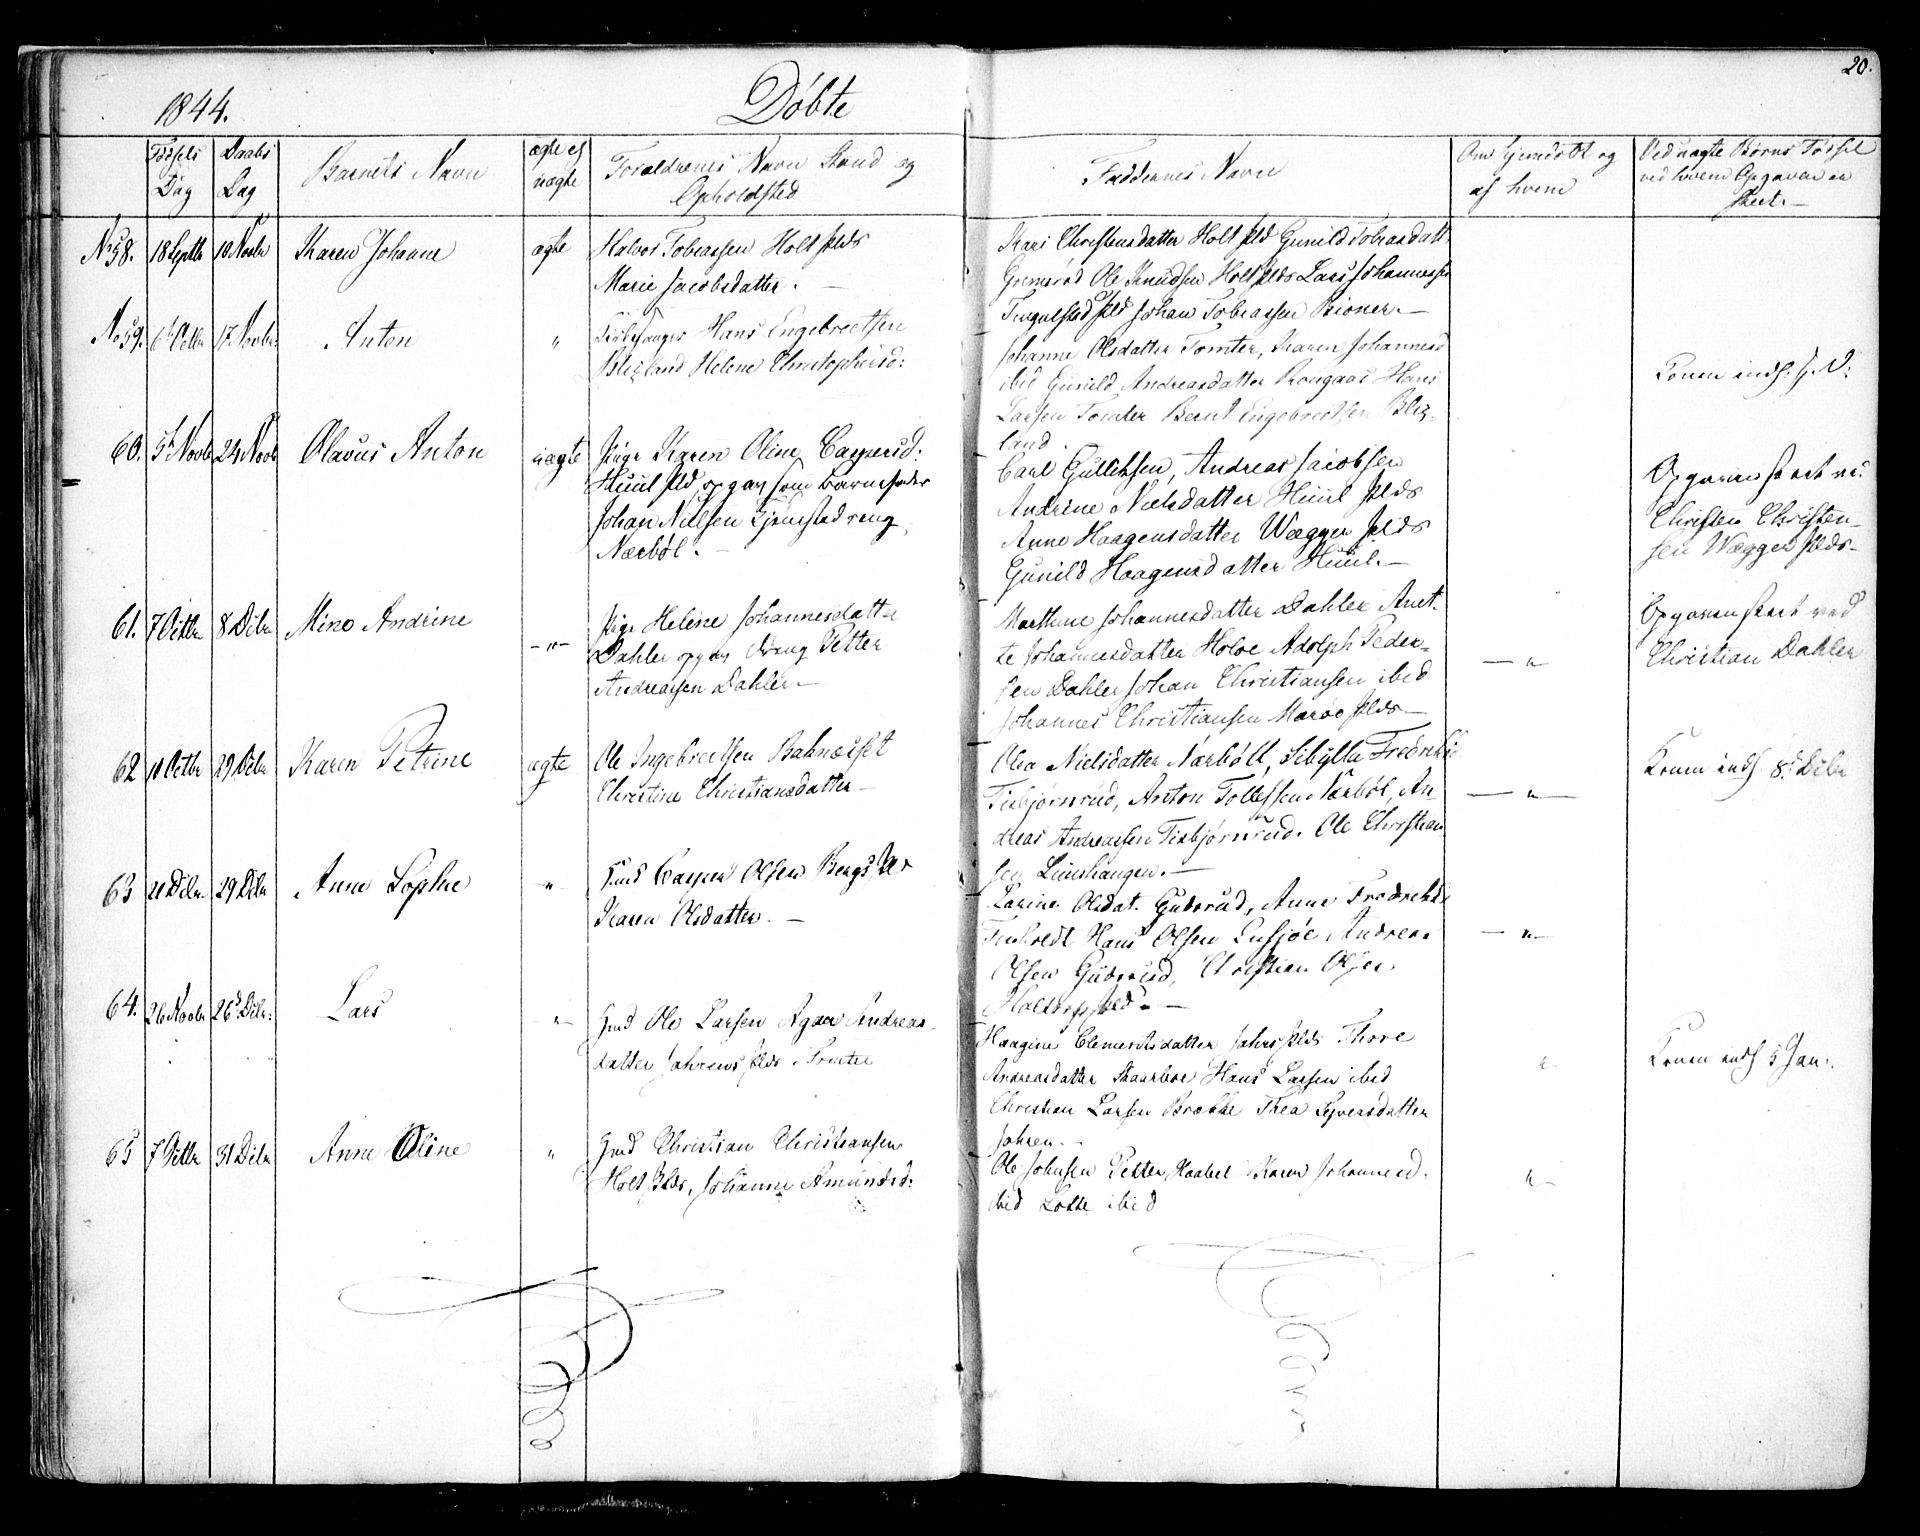 20.
1844.
Døbte
Fødsels Dag
Daabs Dag
Barnets Navn
ægte el uægte
Forældrenes Navn Stand og
Opholdsted
Faddernes Navn
Om Hjemdøbt og
af hvem
Ved uægte Børns Fødsel
ved hvem Opgaven er
skeet.
No 58. 18 Septbr 10 Novbr Karen Johanne ægte
Halvor Tobiassen Holt
Marie Jacobsdatter.
Kari Christensdatter Holt Gunild Tobiasdatt
Grimsrød Ole Knudsen Holt Lars Johannessen
Tingulstad Johan Tobiassen Bioner.
No 59. 6 Octbr 17 Novbr. Anton "
Hans Engebretsen
Blixland Helene Christophersd:
Johanne Olsdatter Tomter, Karen Johannesd
ibid Gunild Andreasdatter Rougaas Hans
Larsen Tomter Bernt Engebretsen Blix-
land
Konen indl:
60. 5 Novbr 24 Novbr Olavus Anton uægte
Pige Karen Oline Caspersd:
Huul opgav som Barnefader
Johan Nielsen Tjenestedreng
Nærbøl.
Carl Gullichsen, Andreas Jacobsen
Andrine Nielsdatter Huul
Anne Haagensdatter Wægger
Gunild Haagensdatter Huul.
Opgaven skeet ved
Christen Christen-
sen Wægger
61. 7 Octbr 8 Dcbr Mino Andrine -"-
Pige Helene Johannesdatter
Dahler opgav dreng Petter
Andreassen Dahler
Marthine Johannesdatter Dahler Anet-
te Johannesdatter Holøe Adolph Peder-
sen Dahler Johan Christiansen ibid
Johannes Christiansen Marøe
"
Opgaven skeet ved
Christian Dahler
62 10 Octbr 29 Dcbr Karen Petrine ægte
Ole Ingebretsen Bahnæsset
Christine Christiansdatter
Olea Nielsdatter Nærbøll, Sibylla Fredrikke
Tisbjørnrud, Anton Tollefsen Nærbøl, An-
dreas Andreassen Tisbjørnrud. Ole Christian-
sen Liinshaugen.
"
Konen indl 8 Dcbr
63 21 Dcbr. 29 Dcbr Anne Sophie "
Casper Olsen Bergs
Karen Olsdatter.
Karine Olsdat. Guderud, Anne Fredrikke
Hans Olsen Andreas
Olsen Guderud, Christian Olsen
Holtorp
"
64. 26 Novbr 26 Dcbr: Lars "
Ole Larsen Agaa Andreas-
datter Jahrens Tomter
Haagine Clementsdatter Jahrs Thore
Andreasdatter Skaarboe Hans Larsen ibid
Christian Larsen Brække Thea Syversdatter
Jahren.
"
Konen indl 5 Jan:
65 7 Octbr 31 Dcbr Anne Oline "
Christian Christiansen
Holt, Johanne Amundsd:
Ole Johnsen Petter Haabel Karen Johannesd.
ibid Lotte ibid
"